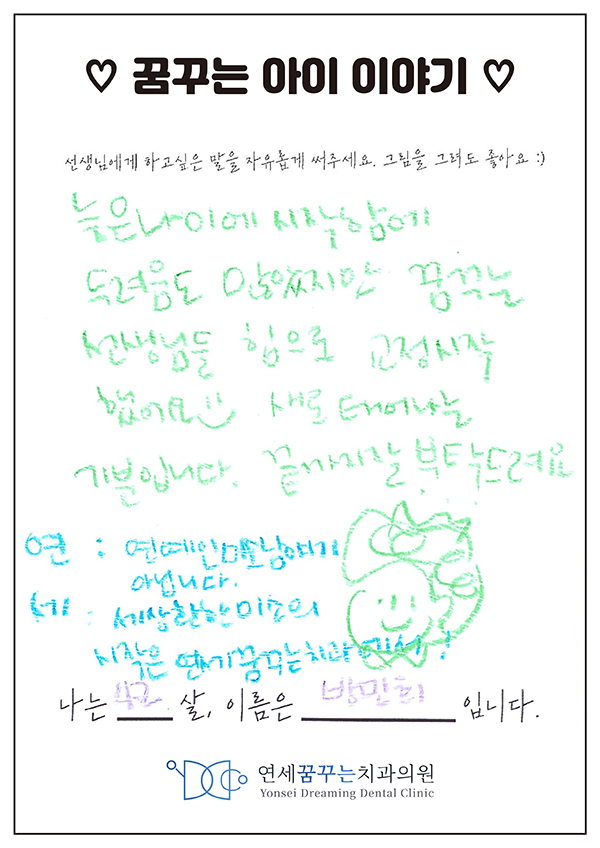 ♡ 꿈꾸는 아이 이야기 ♡
선생님에게 하고싶은 말을 자유롭게 써주세요. 그림을 그려도 좋아요 :)
늦은나이에 시작함에
두려움도 많았지만 꿈꾸는
선생님들 힘으로 교정시작
했어요 새로 태어나는
기분입니다. 끝까지잘 부탁드려요
연 : 연예인만의 남얘기
아닙니다.
세 : 세상환한미소의
시작은 연세꿈꾸는치과에서!
나는 살, 이름은 방민희 입니다.
연세꿈꾸는치과의원
Yonsei Dreaming Dental Clinic